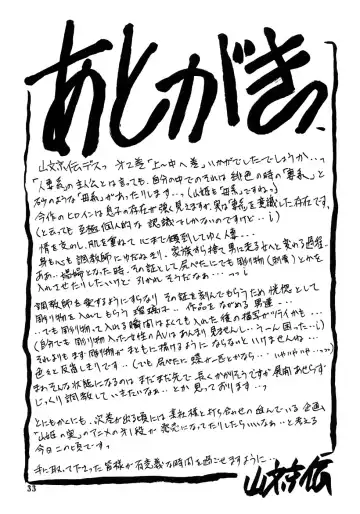 あとがきっ
山文京伝デスっ 第2巻「上〜中へ巻」いかがでしたでしょうか…っ
「人妻系」の主人公とは言っても、自分の中でのそれは 桃色の時の「妻系」と
のような「母系」があったりします…っ(山姫も「母系」ですね。)
今作のヒロインは息子の存在が強く見えますが、実は「妻」を意識した存在です。
(と言っても 至極個人的な 認識でしかないのですけど…;)
情を交わし、肌を重ねて 心まで 傾倒してゆく人妻…
身も心も 調教師に 家族から捨て 男に走る女へと変わる過程
ああ… 場婦となった時、その証として 尻べたにでも 彫り物(刺青)とかを
入れてせたりしたいけど 引かれそうだなぁ…っっ;
調教師を愛するようにすらなり その証を刻んでもらうため 恍惚として
彫り物を入れてもらう 瑠璃は… 作品をながめる男達…
…でも 彫り物入れる瞬間はよくても 入れた後の描写がツライかも…
(自分でも 彫り物入った女性のAVはあんまり見ませんし…うーん困った…;)
それよりもまず 彫り物が まともに描けるように ならないといけませんね…
色々と反省しきりです…(でも尻べたに 蝶が一匹とかなら… いやいやいや…っっ)
まぁそんな状態になるのは まだまだ先で 長くかかりそうですが 展開あせらず
じっくり調教していきたいなぁ…とか思っております…っ
ともかくにも、次巻が出る頃には 某社様と打ち合せの進んでいる企画
「山姫の実」のアニメの才1段が 発売になってたりしたらいいなぁ…と考える
今日この頃です…
手に取って下さった皆様が有意義な時間を過ごせますように…
山文京伝
33